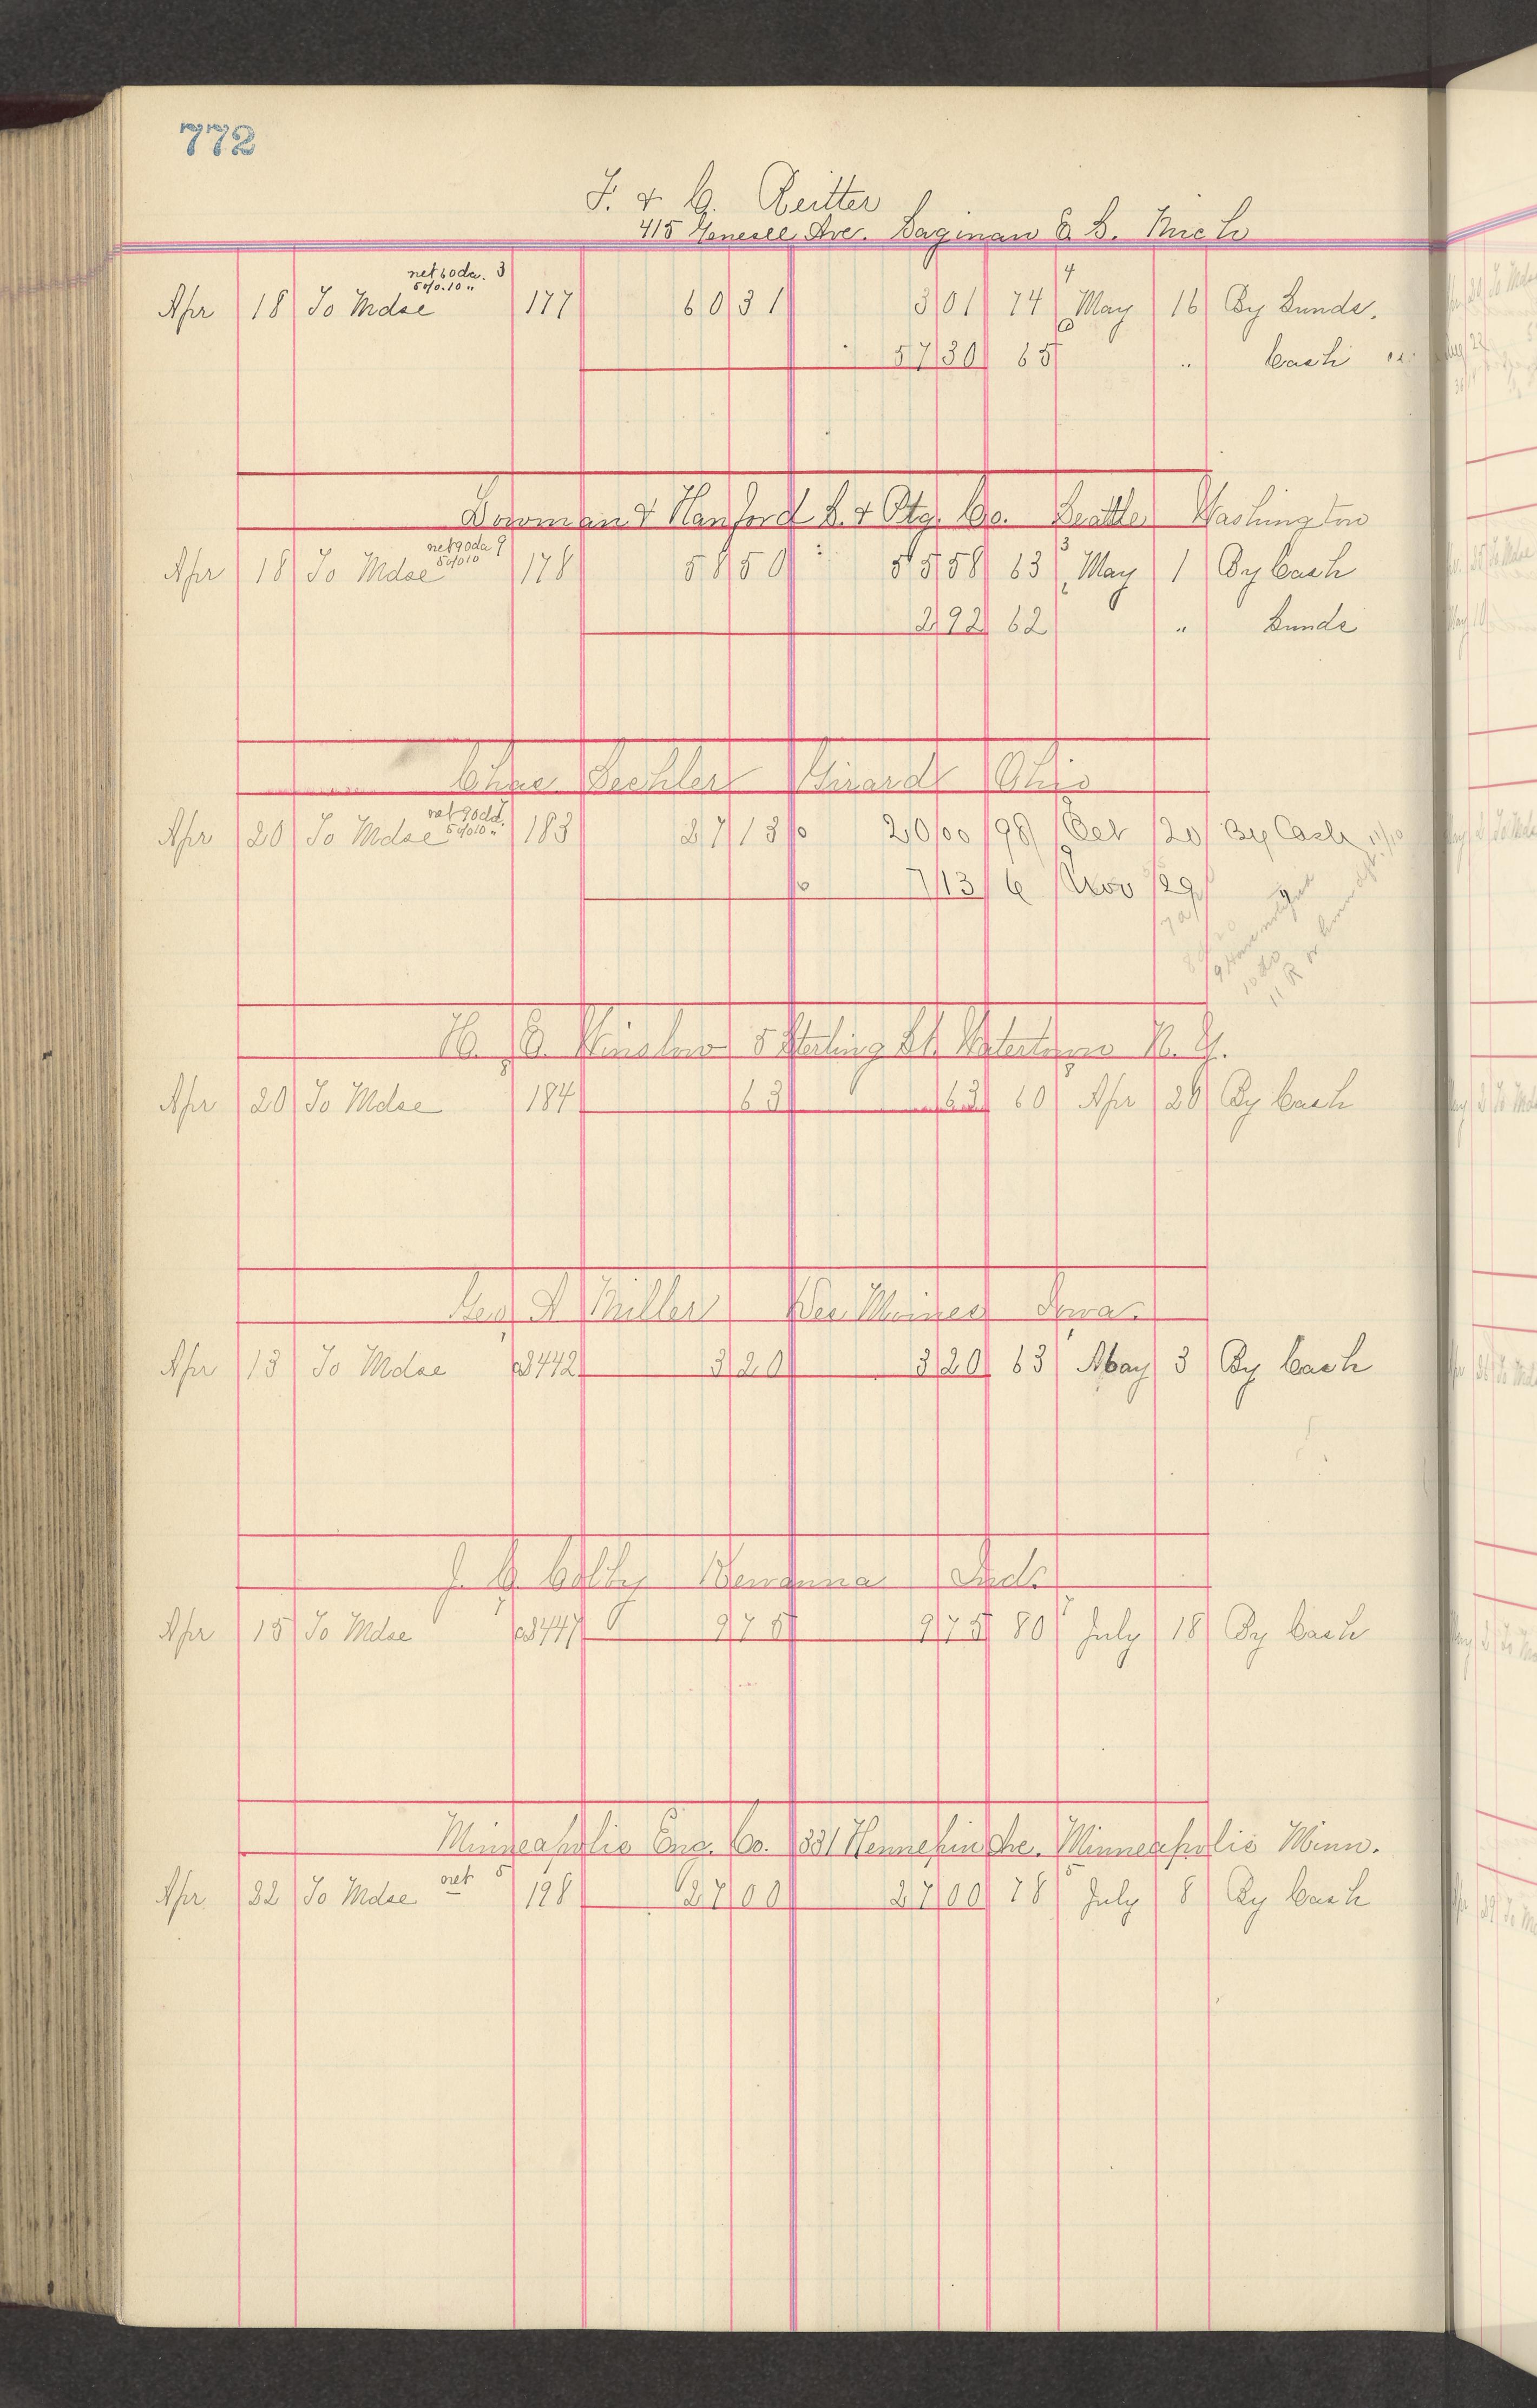 772
F. & C. Reitter
415 Genesee Ave. Saginaw E. S. Mich
net 60 ds. 3
5% 10 "
4
Apr 18 To Mdse 177 60 31 3 01 74 May 16 By Sunds.
57 30 65 " Cash
Lowman & Hanford S. & Ptg. Co. Seattle Washington
net 90 ds 9
5% 10
3
Apr 18 To Mdse 178 58 50 55 58 63 May 1 By Cash
2 92 62 " Sunds
Chas Dechler Girard Ohio
net 90 ds.
5% 10 "
Apr 20 To Mdse 183 27 13 20 00 98 Oct 20 By Cash
7 13 6 Nov 29
H. E. Winslow 5 Sterling St. Watertown N. Y.
Apr 20 To Mdse 184 63 63 60 Apr 20 By Cash
Geo A Miller Des Moines Iowa.
Apr 13 To Mdse 3442 3 20 3 20 63 May 3 By Cash
J. C. Colby Kewanna Ind.
7 7
Apr 15 To Mdse 3447 9 75 9 75 80 July 18 By Cash
Minneapolis Eng. Co. 331 Hennepin Ave. Minneapolis Minn.
net 5 5
Apr 22 To Mdse 198 27 00 27 00 78 July 8 By Cash